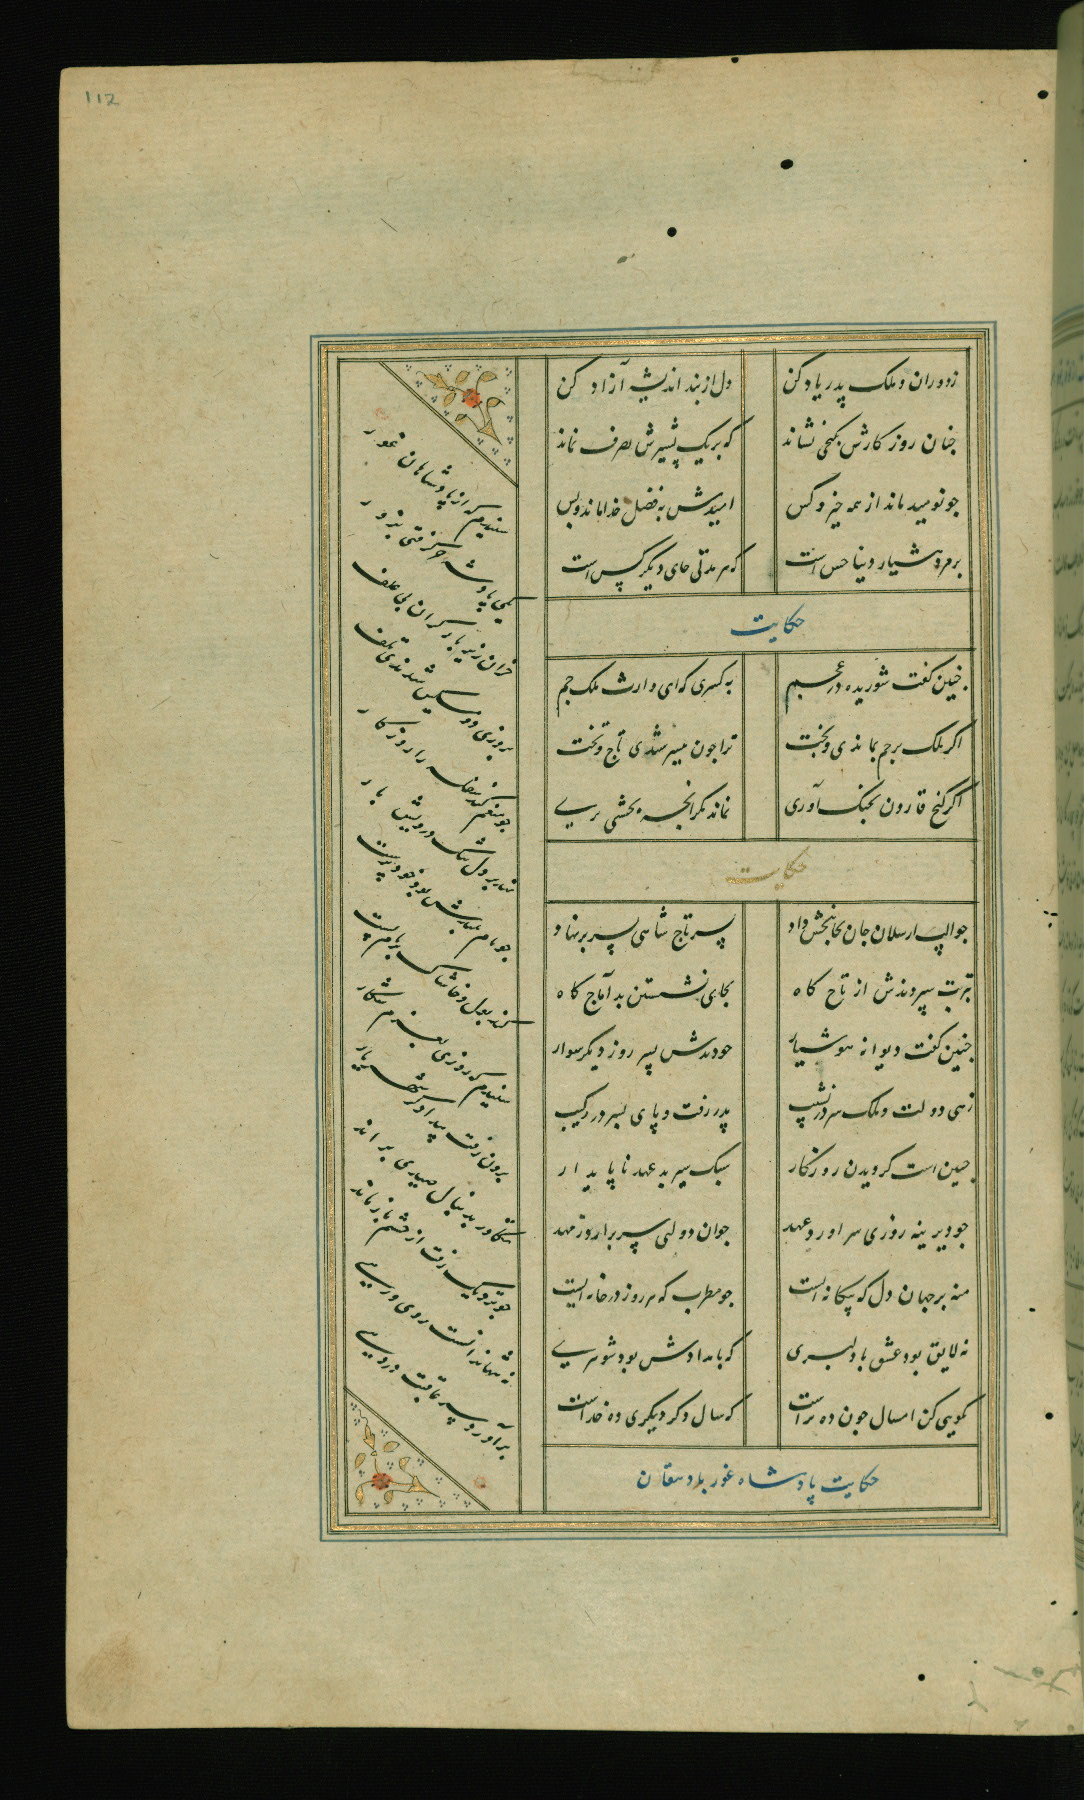 112
ز دوران و ملک پدر یاد کن دل از بند اندیشه آزاد کن
جنان روز کارش بکنجی نشاند که بر یک پشیزش تصرف نماند
جو نومید ماند از همه چیز و کس امیدش به فضل خدا ماند و بس
بر مرد هشیار دینا خس است که هر مدتی جای دیگر کس است
حکایت
جنین گفت شوریده در عجم به کسری که ای وارث ملک جم
اگر ملک بر جم بماندی و بخت ترا جون میسر شدی تاج و تخت
اگر گنج قارون بجنگ آوری نماند مگر انجه بخشی بری
حکایت
جو الپ ارسلان جان بجانبخش داد پسر تاج شاهی بسر بر نهاد
بتربت سپردندش از تاج کاه بجای نشستن بد آماج کاه
جنین گفت دیوانه هوشیار جو دیدش پسر روز دیگر سوار
زهی دولت و ملک سر در نشیب پدر رفت و پای پسر در رکیب
جنین است کردیدن روزکار سبک سیر بد عهد نا پایدار
جو دیرینه روزی سر آورد عهد جوان دولتی سر بر آرد ز مهد
منه بر جهان دل که بیکانه ایست جو مطرب که هر روز در خانه ایست
نه لایق بود عشق با دلبری که بامدادش بود شوهری
نکویی کن امسال جون ده تراست که سال دکر دیگری ده خداست
حکایت پادشاه غور با دهقان
شنیدم که از پادشاهان غور
یکی پادشه خر گرفتی بزور
خران زیر بار گران بی علف
بروزی دو مسکین شدندی تلف
جو منعم کند سفله را روزکار
نهد بر دل تنک درویش بار
جو بام بلندش بود خود پرست
کند بول و خاشاک بر بام پست
شنیدم که روزی بعزم شکار
برون رفت بیدادگر شهریار
تکاور بدنبال صیدی براند
جو نزدیک رفت از حشم باز ماند
نه تنها ندانست روی و رهی
برآورد سر عاقبت در دهی